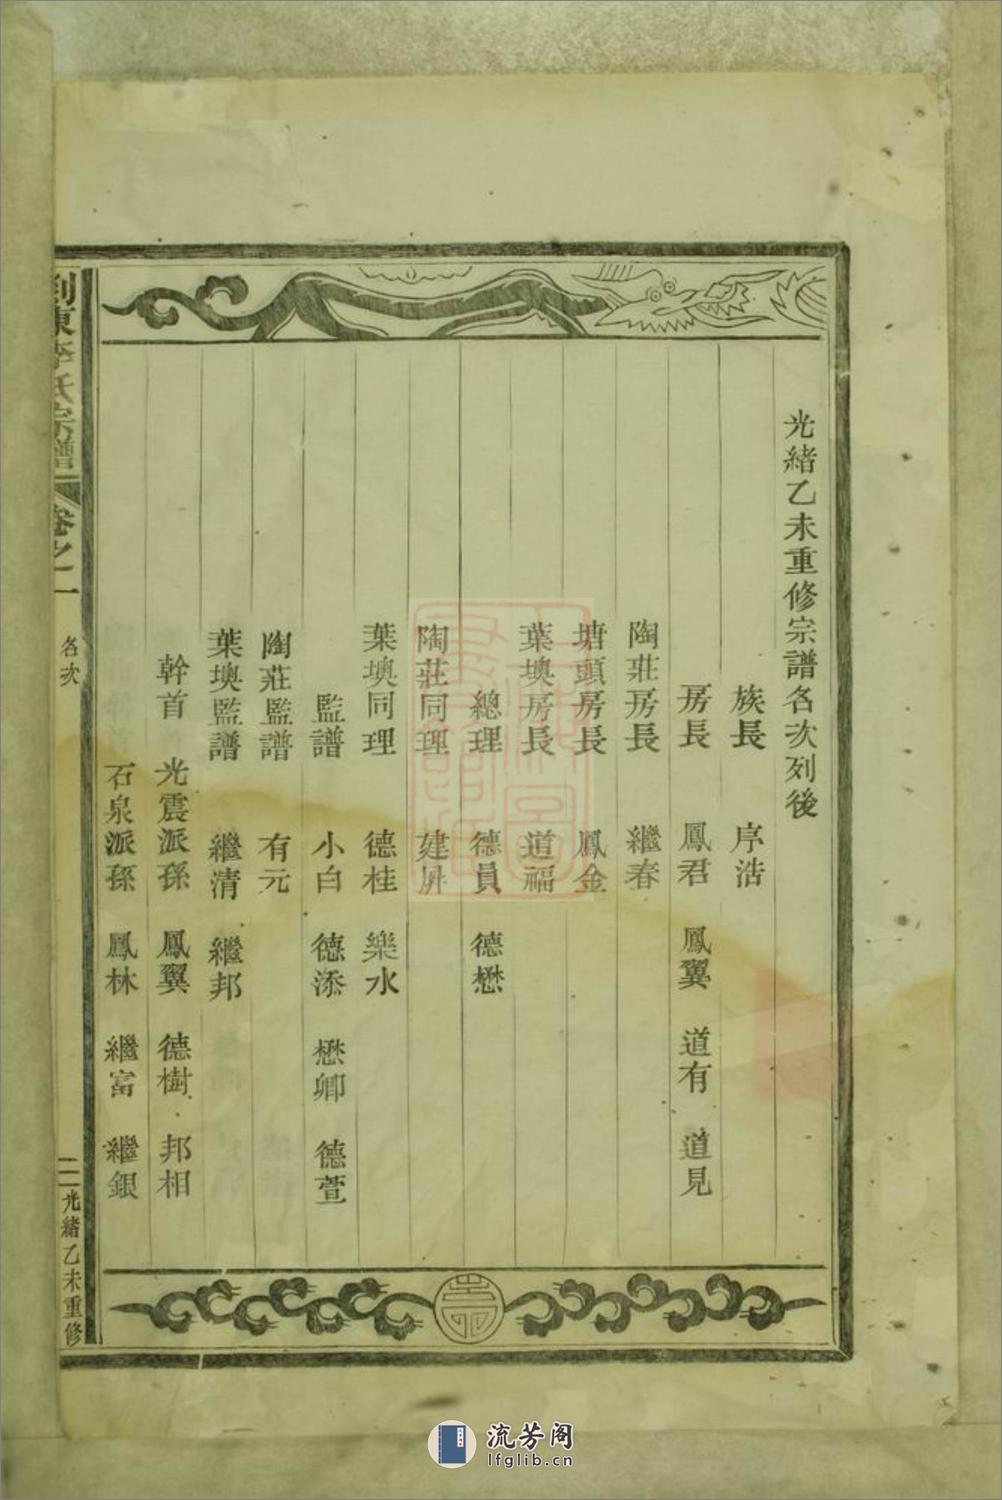 光緒乙未重修宗譜各次列後
族長 序浩
房長 鳳君 鳳翼 道有 道見
陶莊房長 繼春
塘頭房長 鳳金
葉墺房長 道福
總理 德員 德懋
陶莊同理 建昇
葉墺同理 德桂 樂水
監譜 小白 德添 懋卿 德萱
陶莊監譜 有元
葉墺監譜 繼清 繼邦
幹首 光震派孫 鳳翼 德樹 邦相
石泉派孫 鳳林 繼富 繼銀
東李氏宗譜 卷之一 各次 二 光緒乙未重修
流芳阁
lfglib.cn